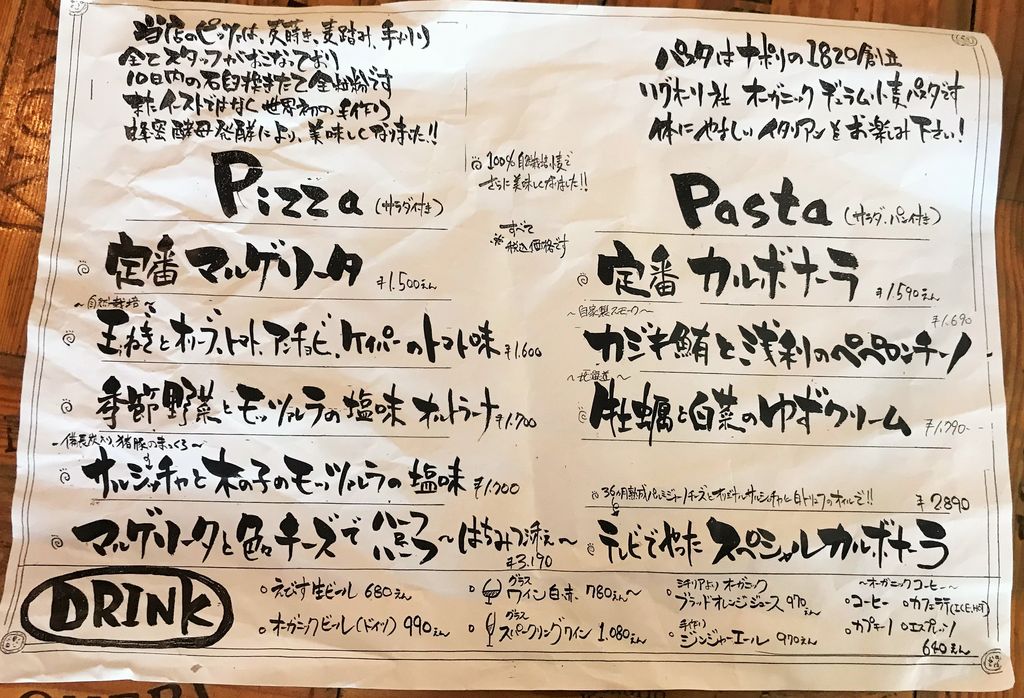 当店のピッツァは、麦蒔き、麦踏み、手刈り
全てスタッフがおこなっており
10日内の石臼挽きたて全粒粉です
またイーストではなく世界初の手作り
蜂蜜酵母発酵により、美味しくなりました!!
パスタはナポリの1820創立
リグオーリ社 オーガニックデュラム小麦パスタです
体にやさしいイタリアンをお楽しみ下さい!
Pizza (サラダ付き)
100%自然栽培小麦で
さらに美味しくなりました!!
すべて
※税込価格です
Pasta (サラダ、パン付き)
定番 マルゲリータ ¥1.500えん
~自然栽培~
玉ねぎとオリーブ、トマト、アンチョビ、ケイパーのトマト味 ¥1.600
季節野菜とモッツァレラの塩味 オルトラーナ ¥1.700
~備長炭入り、猪豚のまっくろ~
サルシッチャと木の子のモッツァレラの塩味 ¥1.700
マルゲリータと色々チーズでハーフ&ハーフ ~はちみつ添え~
¥3.190
定番 カルボナーラ ¥1.590えん
~自家製スモーク~
¥1.690
カジキ鮪と浅利のペペロンチーノ
~北海道~
牡蠣と白菜のゆずクリーム ¥1.790-
36ヶ月熟成パルミジャーノチーズとオリジナルサルシッチャと白トリュフのオイルで!! ¥2890
テレビでやった スペシャルカルボナーラ
DRINK
えびす生ビール 680えん
オーガニックビール(ドイツ) 990えん
グラス
ワイン白・赤 780えん~
グラス
スパークリングワイン 1.080えん
シチリアより オーガニック
ブラッドオレンジジュース 970えん
手作り
ジンジャーエール 970えん
~オーガニックコーヒー~
コーヒー カフェラテ(ICE, HOT)
カプチーノ エスプレッソ
640えん